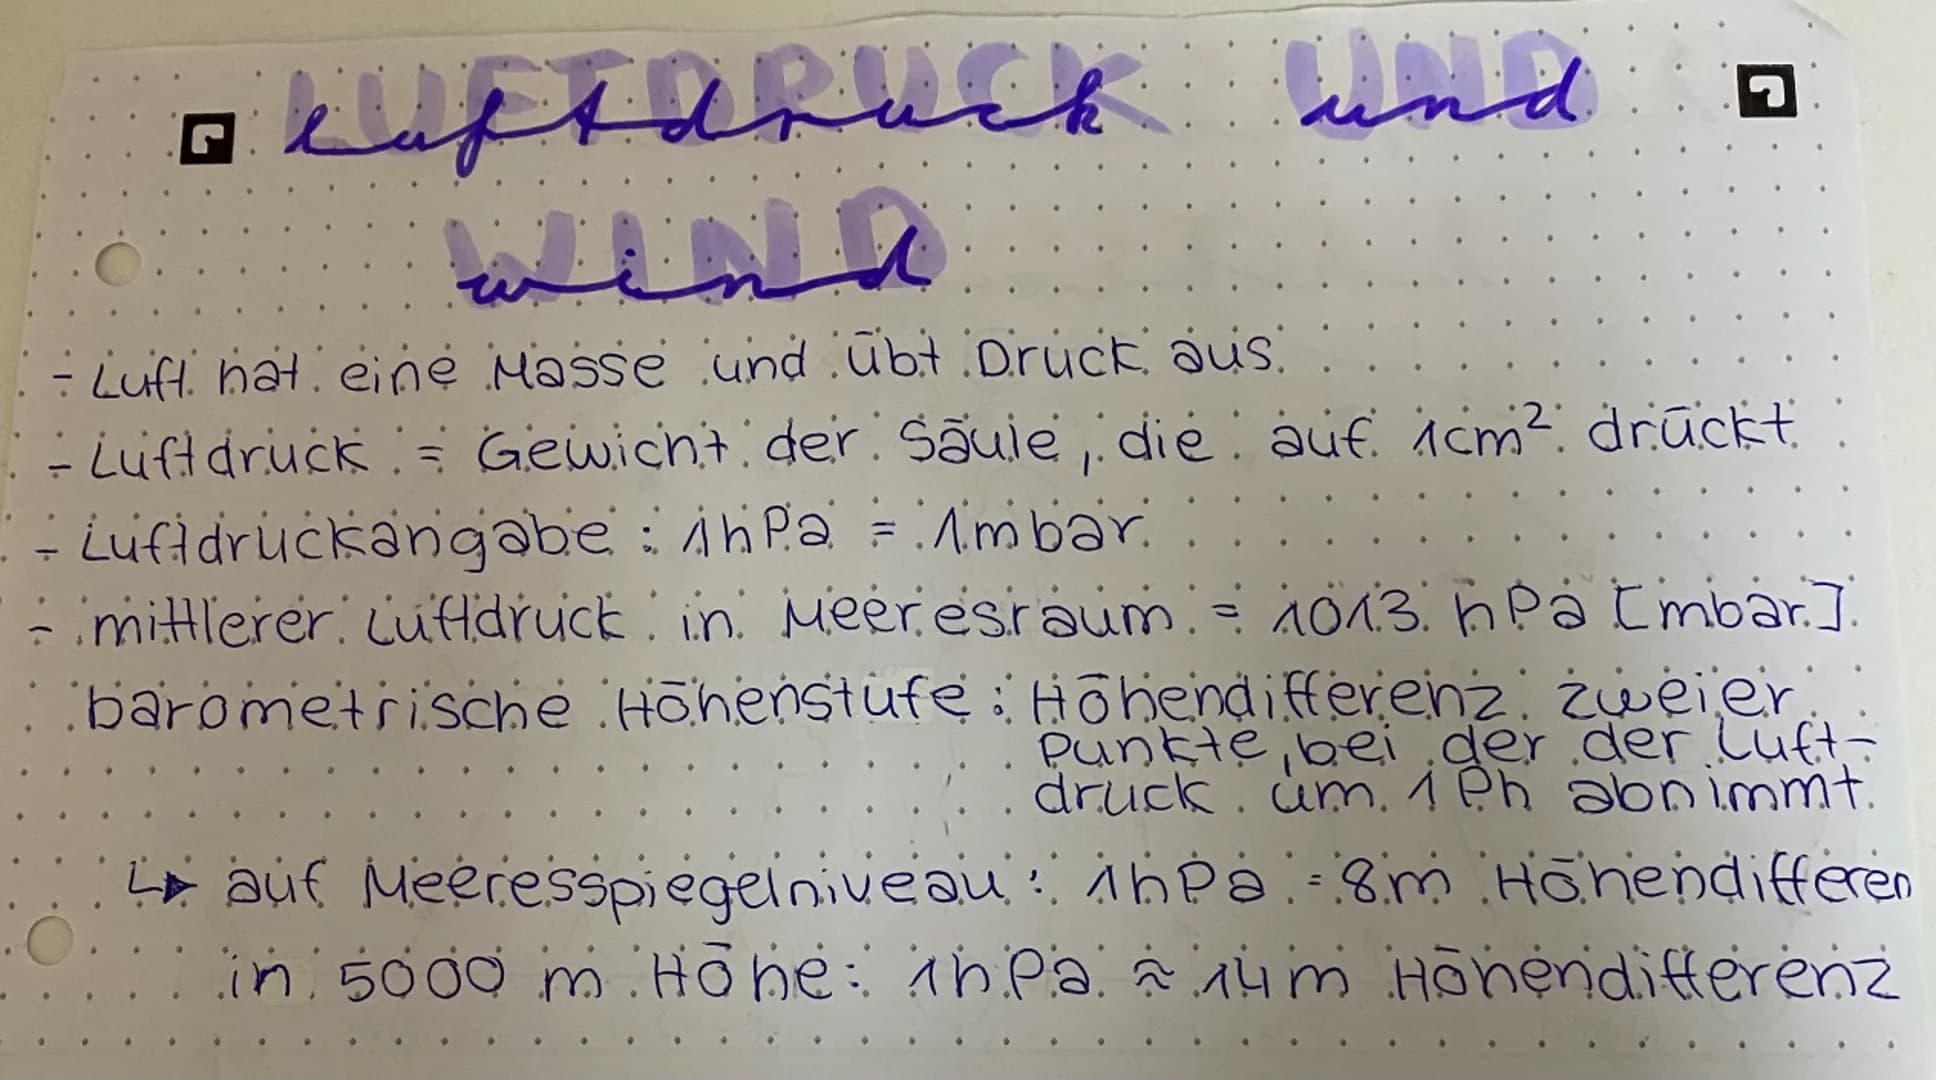 LUFTDRUCK UND
luftdruck und
WIND
wind
- Luft hat eine Masse und übt Druck aus.
- Luftdruck = Gewicht der Säule, die auf 1cm² drückt
- Luftdruckangabe : 1hPa = 1mbar
- mittlerer Luftdruck in Meeresraum = 1013 hPa [mbar]
barometrische Höhenstufe : Höhendifferenz zweier
Punkte, bei der der Luft-
druck um 1 Ph abnimmt.
↳ auf Meeresspiegelniveau : 1hPa = 8m Höhendifferen
in 5000 m Höhe: 1hPa ≈ 14m Höhendifferenz